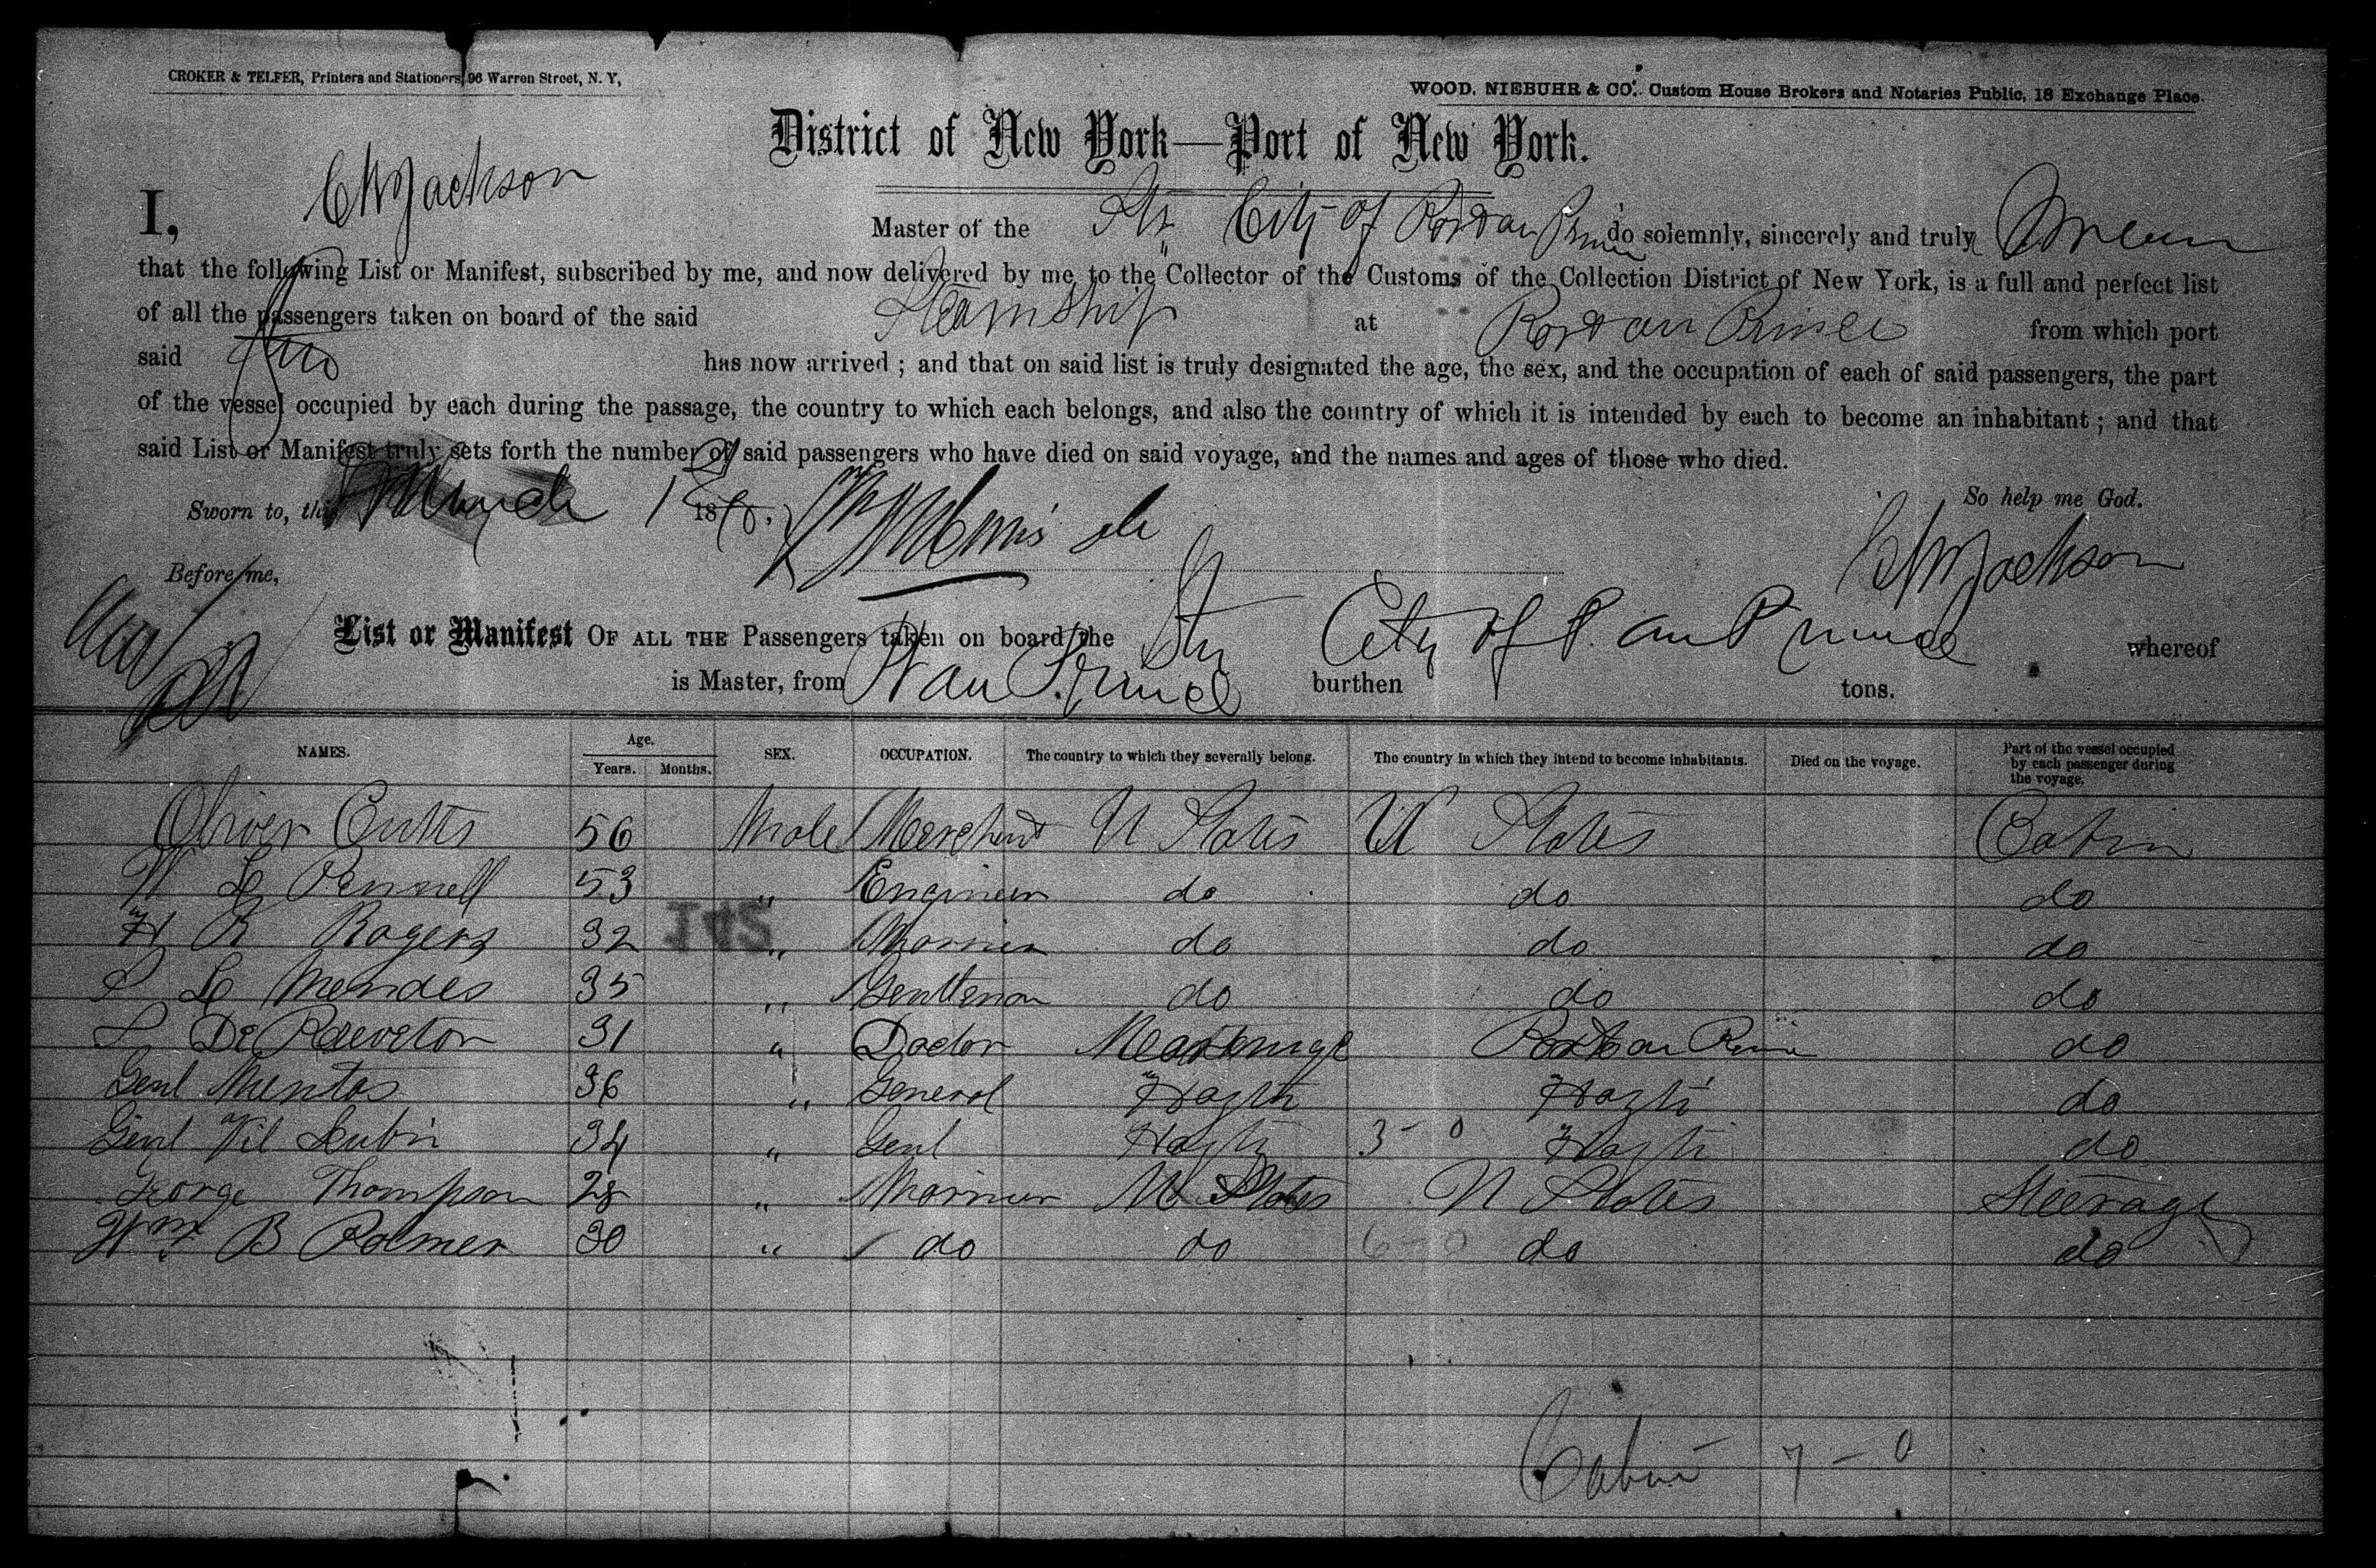 CROKER & TELFER, Printers and Stationers, 96 Warren Street, N. Y,
WOOD, NIEBUHR & CO., Custom House Brokers and Notaries Public, 18 Exchange Place.
District of New York—Port of New York.
I, C W Jackson Master of the Str City of Port au Prince do solemnly, sincerely and truly
that the following List or Manifest, subscribed by me, and now delivered by me to the Collector of the Customs of the Collection District of New York, is a full and perfect list
of all the passengers taken on board of the said Steamship at Port au Prince from which port
said has now arrived ; and that on said list is truly designated the age, the sex, and the occupation of each of said passengers, the part
of the vessel occupied by each during the passage, the country to which each belongs, and also the country of which it is intended by each to become an inhabitant ; and that
said List or Manifest truly sets forth the number of said passengers who have died on said voyage, and the names and ages of those who died.
Sworn to, this March 18
So help me God.
Before me,
C W Jackson
List or Manifest OF ALL THE Passengers taken on board the Str City of P. au Prince whereof
is Master, from P au Prince burthen tons.
NAMES. Age. Years. Months. SEX. OCCUPATION. The country to which they severally belong. The country in which they intend to become inhabitants. Died on the voyage. Part of the vessel occupied by each passenger during the voyage.
Oliver Cutts 56 Male Merchant U States U States Cabin
W L Pennell 53 " Engineer do do do
H R Rogers 32 " Mariner do do do
S L Mendes 35 " Gentleman do do do
L De 31 " Doctor Port au Prince do
Genl Mentas 36 " General Hayti Hayti do
Genl Vil Lubin 34 " Genl Hayti 3-0 Hayti do
George Thompson 28 " Mariner U States U States Steerage
Wm B Palmer 30 " do do 6-0 do do
Cabin 7-0